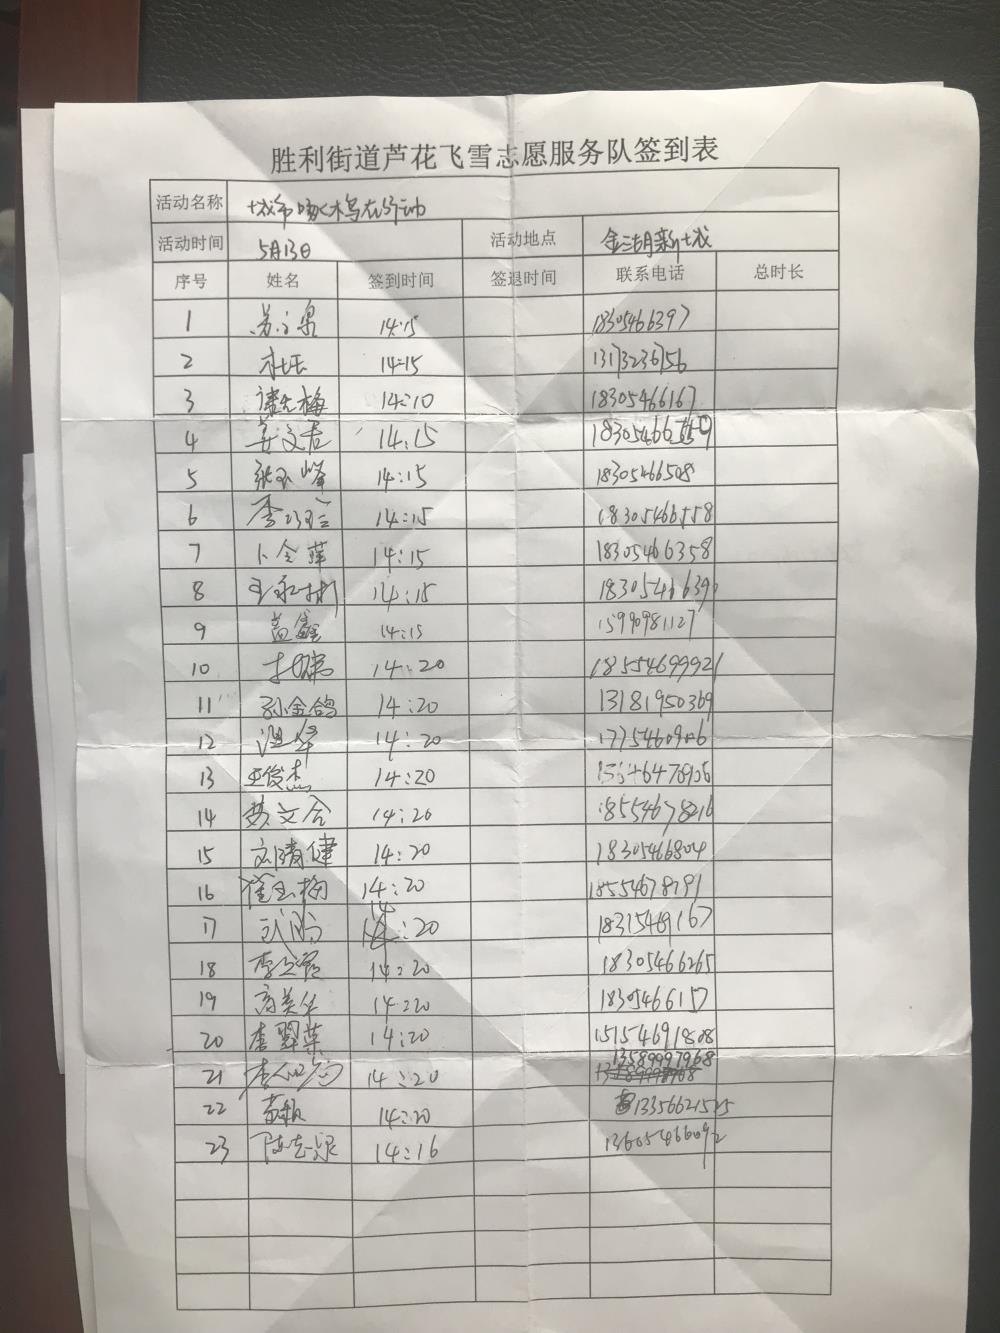 胜利街道芦花飞雪志愿服务队签到表
活动名称 城市啄木鸟在行动
活动时间 5月13日 活动地点 金湖新城
序号 姓名 签到时间 签退时间 联系电话 总时长
1 14:15 18305466397
2 杜乐 14:15
3 14:10 18305466167
4 姜文君 14:15
5 张玉峰 14:15 18305466508
6 14:15 18305466558
7 卜令萍 14:15 18305466358
8 王永彬 14:15
9 盖鑫 14:15 15990981127
10 14:20 18554699921
11 孙金鸽 14:20 13181950369
12 温华 14:20
13 王俊杰 14:20
14 14:20 18554678216
15 刘晴健 14:20 18305466804
16 崔玉梅 14:20 18554678791
17 14:20 18315469167
18 14:20 18305466265
19 高美华 14:20 1830546615
20 李翠菜 14:20 15154691808
21 14:20 13589997968
22 苗靓 14:20 13356621525
23 陈志泉 14:16 13605466092